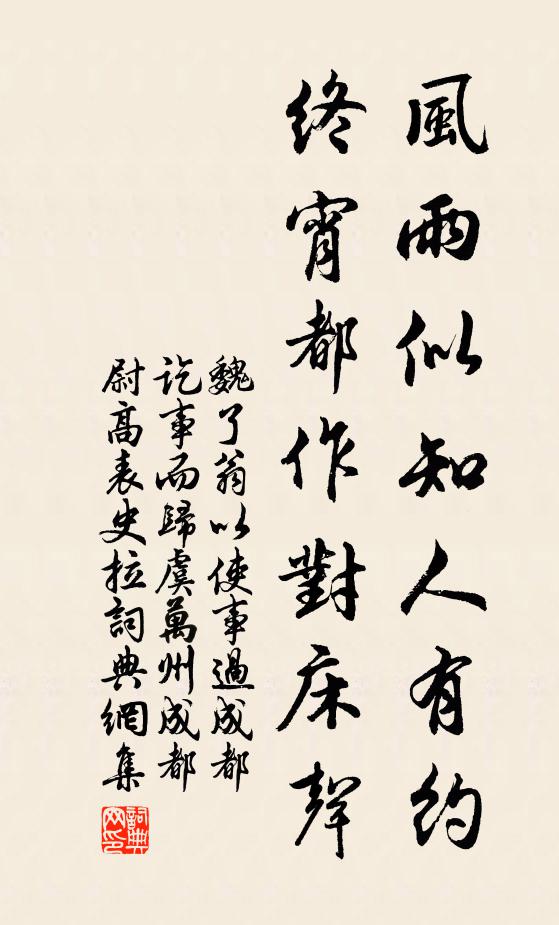 風雨似知人有約
終宵都作對床聲
魏了翁以使事過成都
訖事而歸虞萬州成都
尉高表史拉詞典網集
詞典網印